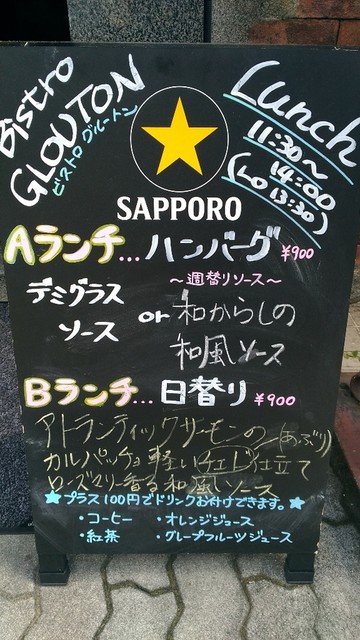 Bistro
GLOUTON
ビストロ グルートン
Lunch
11:30～
14:00
(Lo 13:30)
SAPPORO
Aランチ…ハンバーグ ¥900
～週替りソース～
デミグラス
ソース
or 和からしの
和風ソース
Bランチ…日替り ¥900
アトランティックサーモンの(あぶり)
カルパッチョ 軽い 仕立て
ローズマリー香る和風ソース
★プラス100円でドリンクお付けできます。★
・コーヒー ・オレンジジュース
・紅茶 ・グレープフルーツジュース